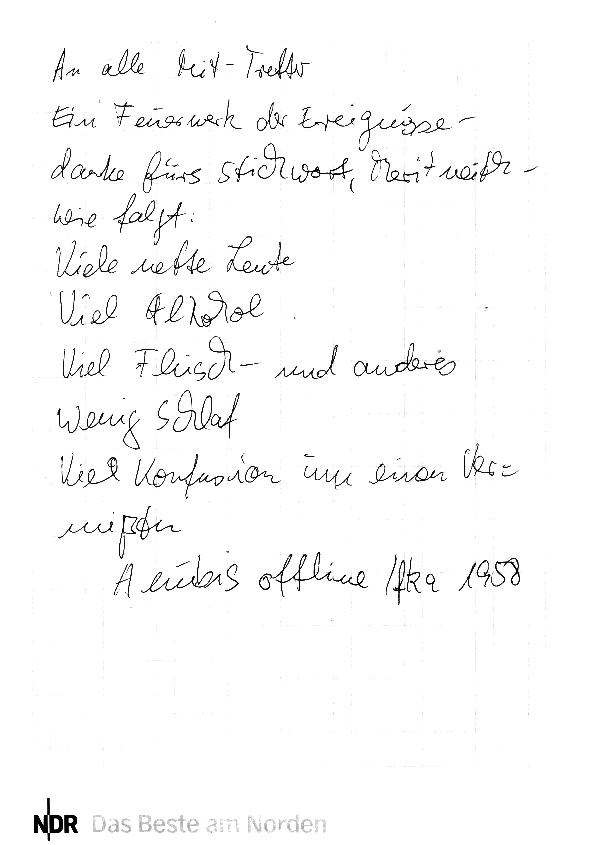 An alle Mit-Treffer
Ein Feuerwerk der Ereignisse-
danke fürs Stichwort, Merit
wie folgt:
Viele nette Leute
Viel Alkohol
Viel Fleisch- und anderes
Wenig Schlaf
Viel Konfusion um einen Ver=
mißten
offline /fka 1958
NDR Das Beste am Norden